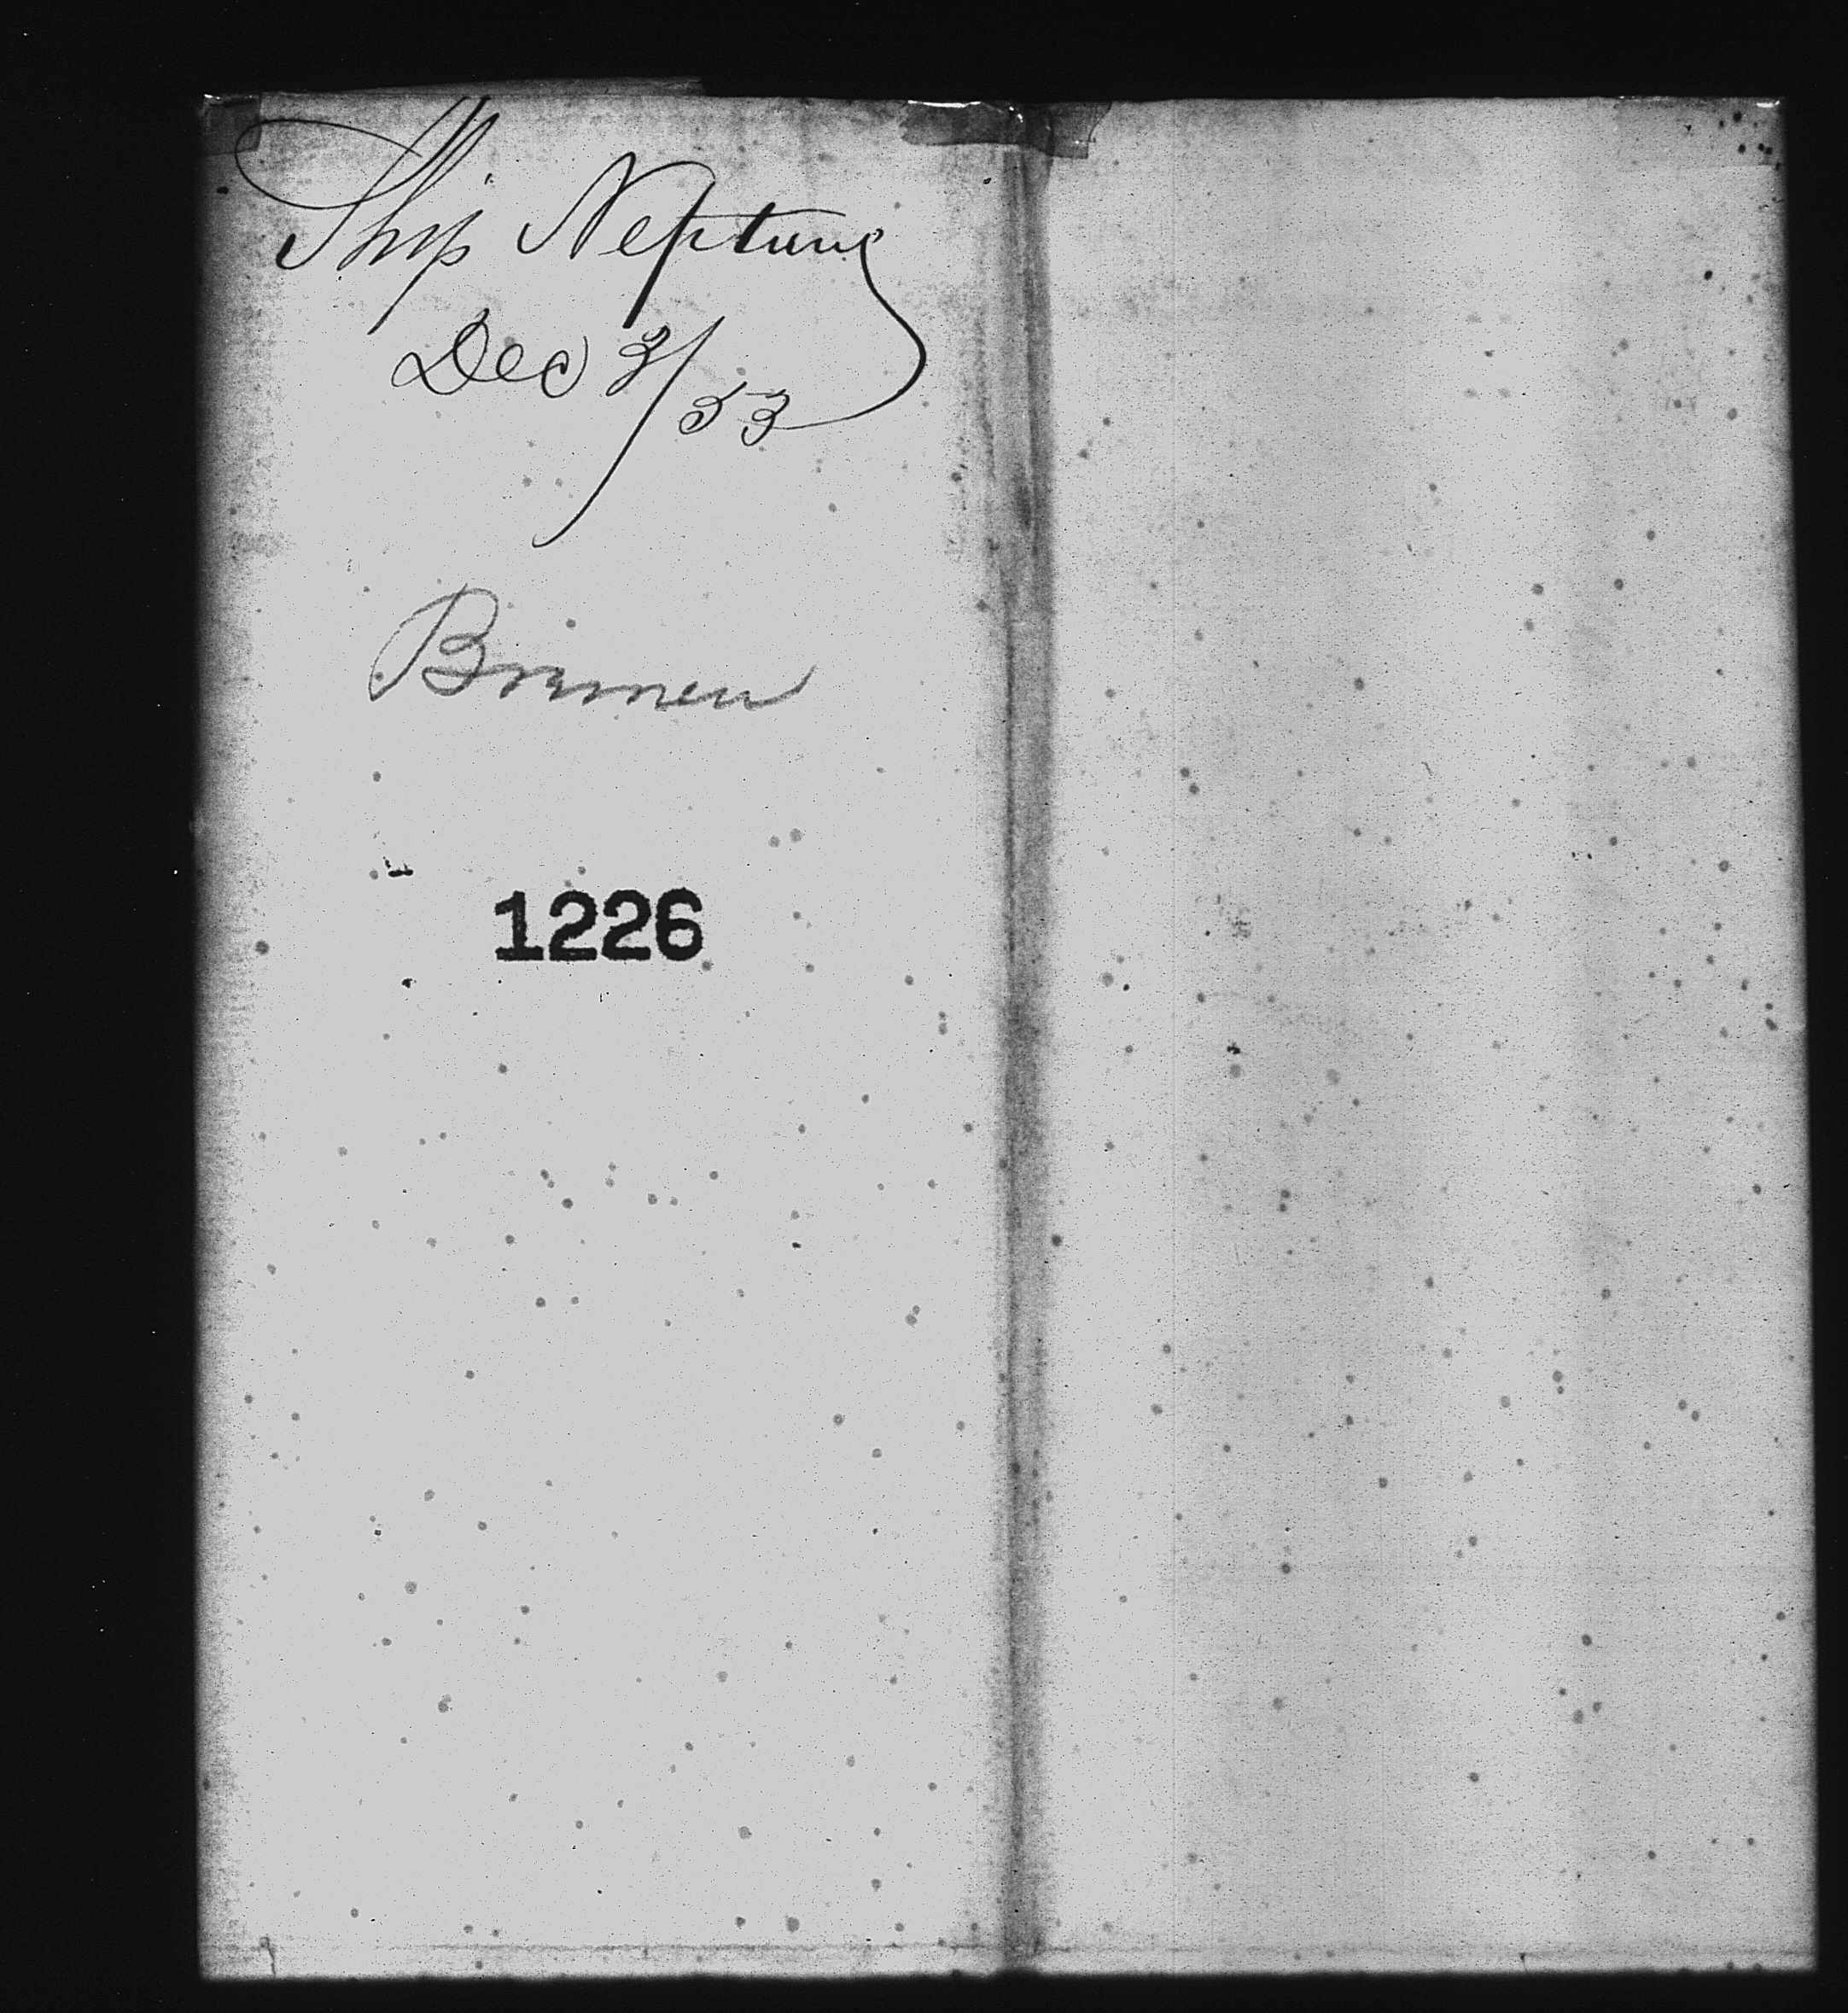 Ship Neptune
Dec 3/53
Bremen
1226